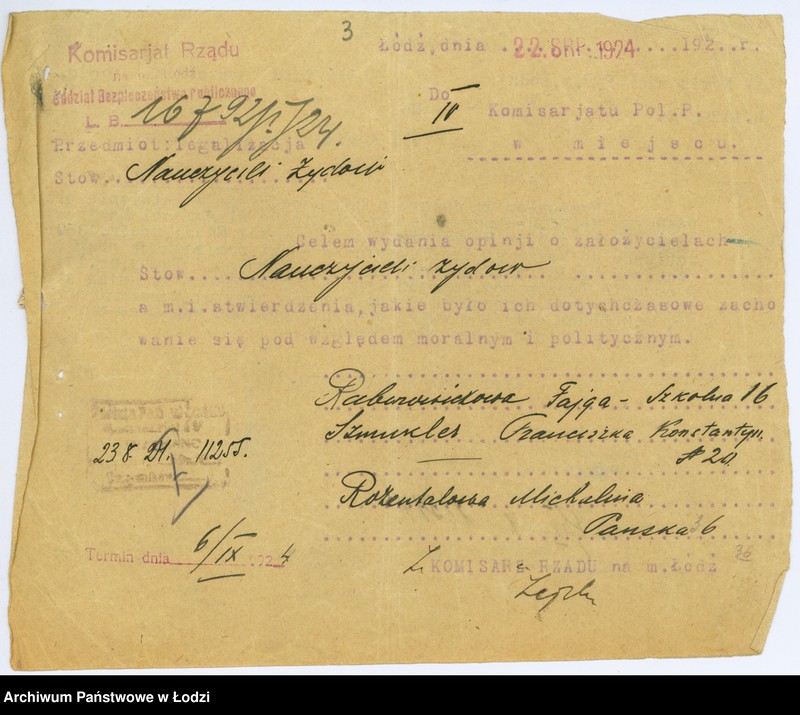 3
Łódź, dnia 22 SRP. 1924 192 r.
Komisarjat Rządu
na m. Łódź
Oddział Bezpieczeństwa Publicznego
L. B. 16792/I/24.
Przedmiot: legalizacja
Stow. Nauczycieli Żydów
Do
IV Komisarjatu Pol.P.
w miejscu.
Celem wydania opinji o założycielach
Stow. Nauczycieli żydow
a m.i.stwierdzenia, jakie było ich dotychczasowe zacho
wanie się pod względem moralnym i politycznym.
Fajga - Szkolna 16
Szmukler Franciszka Konstantyn.
№ 20
Rozentalowa Michalina
Panska 36
23 8 24. 11255.
Termin dnia 6/IX 1924
Z. KOMISARZ RZĄDU na m. Łódź
36
Archiwum Państwowe w Łodzi